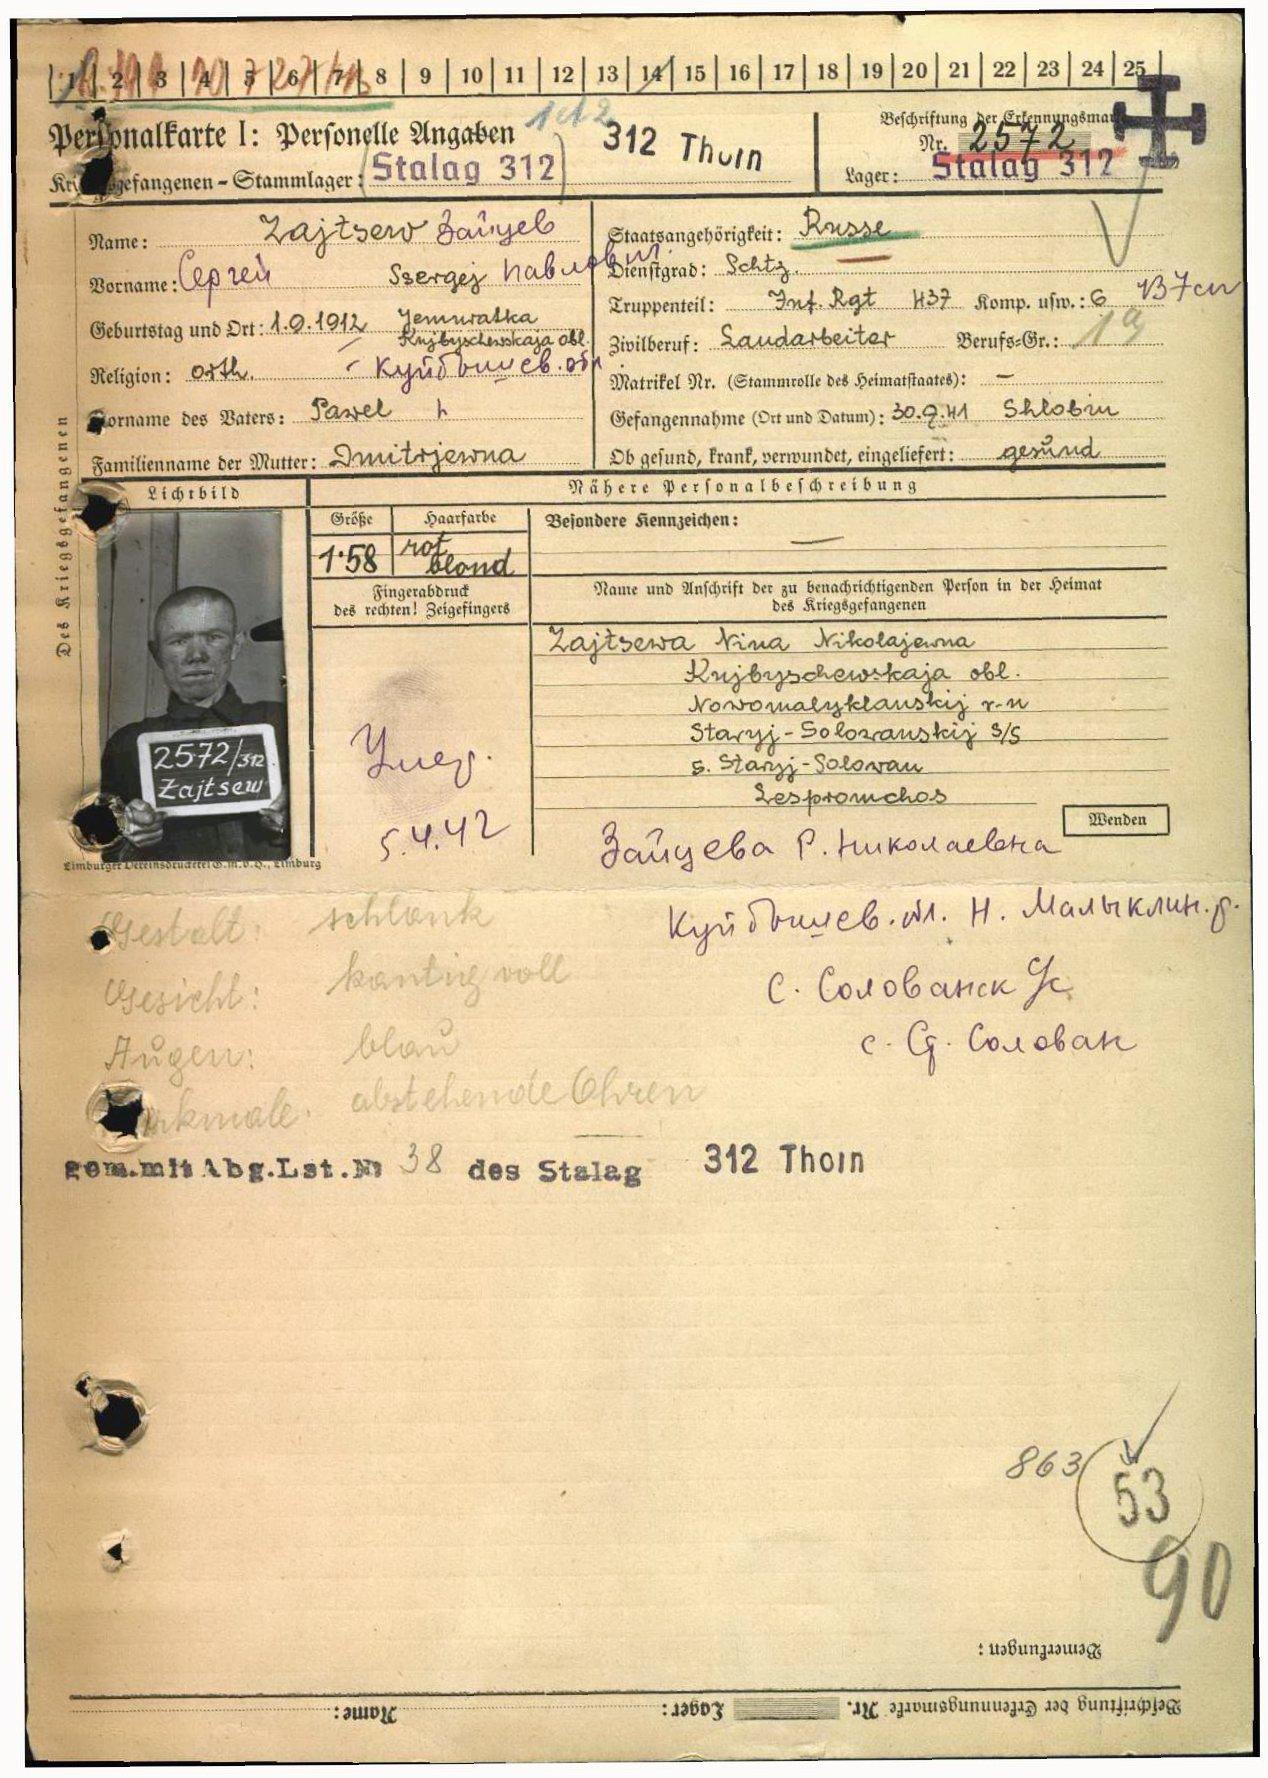 1 2 3 4 5 6 7 8 9 10 11 12 13 14 15 16 17 18 19 20 21 22 23 24 25
Personalkarte I: Personelle Angaben
312 Thorn
Beschriftung der Erkennungsmarke
Nr. 2572
Kriegsgefangenen-Stammlager: Stalag 312
Lager: Stalag 312
Des Kriegsgefangenen
Name: Zajtsew Зайцев
Vorname: Сергей Szergej Павлович
Geburtstag und Ort: 1.9.1912
Kujbyschewskaja obl.
Religion: orth. Куйбышев. обл
Vorname des Vaters: Pawel
Familienname der Mutter: Dmitrjewna
Staatsangehörigkeit: Russe
Dienstgrad: Schtz.
Truppenteil: Inf. Rgt 437 Komp. usw.: 6
Zivilberuf: Landarbeiter Berufs-Gr.:
Matrikel Nr. (Stammrolle des Heimatstaates): –
Gefangennahme (Ort und Datum): 30.9.41 Shlobin
Ob gesund, krank, verwundet, eingeliefert: gesund
Lichtbild
Nähere Personalbeschreibung
Größe Haarfarbe
1·58 rot blond
Besondere Kennzeichen: —
Fingerabdruck
des rechten! Zeigefingers
Name und Anschrift der zu benachrichtigenden Person in der Heimat
des Kriegsgefangenen
Zajtsewa Nina Nikolajewna
Kujbyschewskaja obl.
Nowomalyklanskij r-n
Staryj-Solowanskij s/s
s. Staryj-Solowan
Lespromchos
2572/312
Zajtsew
Умер.
5.4.42
Wenden
Limburger Vereinsdruckerei G.m.b.H., Limburg
Зайцева Р. Николаевна
Куйбышев. обл. Н. Малыклин. р.
С. Солованск с/с
с. Ст. Солован
Gestalt: schlank
Gesicht: kantig voll
Augen: blau
Merkmale: abstehende Ohren
gem. mit Abg. Lst. Nr 38 des Stalag 312 Thorn
863 53
90
Bemerkungen:
Beschriftung der Erkennungsmarke Nr. Lager: Name: